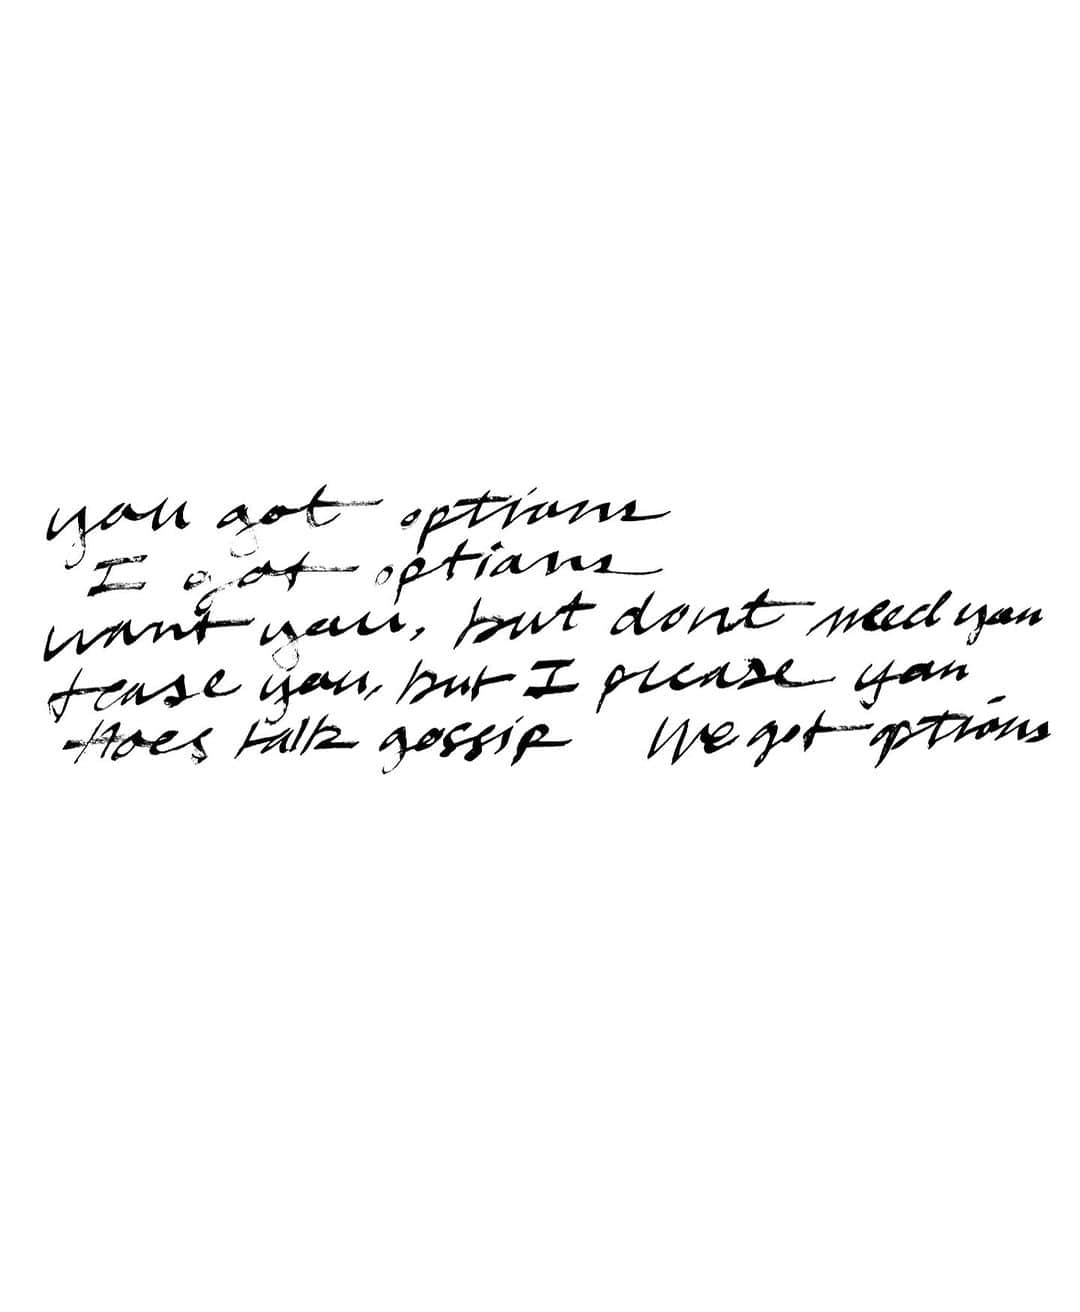 you got options
I got options
want you, but dont need you
tease you, but I please you
Hoes talk gossip We got options